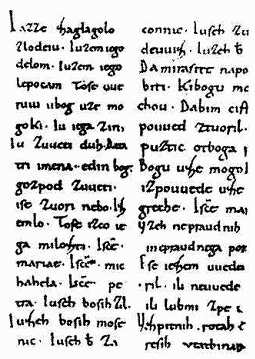 Iazze zaglagolo
zlodeiu. Iuzem iego
delom. Iuzem iego
lepocam. Tose uue
ruiu ubog uze mo
goki. Iu iega zin.
Iu zuueti duh. Data
tri imena. edin bog.
gozpod zuueti.
ise zuori nebo. Ih
emlo. Tose izco ie
ga milozti. Iscē.
mariae. Iscē. mic
hahela. Iscē. pe
tra. Iuseh bosih zil.
Iuzeh bosih mose
nic. Iuseh b. za
connic. Iuseh zu
deuuih. Iuzeh b.
Da mirasite napo
biti. Kibogu mo
chou. Dabim cist
pouued ztuoril.
puztic otboga p
Bogu uze mogo
izpouuede uze
greche. Iscē mar
Uzeh nepraudnih
nepraudnega po
Ese iezem uuede
ril. ili neuuede
ili lubmi zpe
rotah
resih